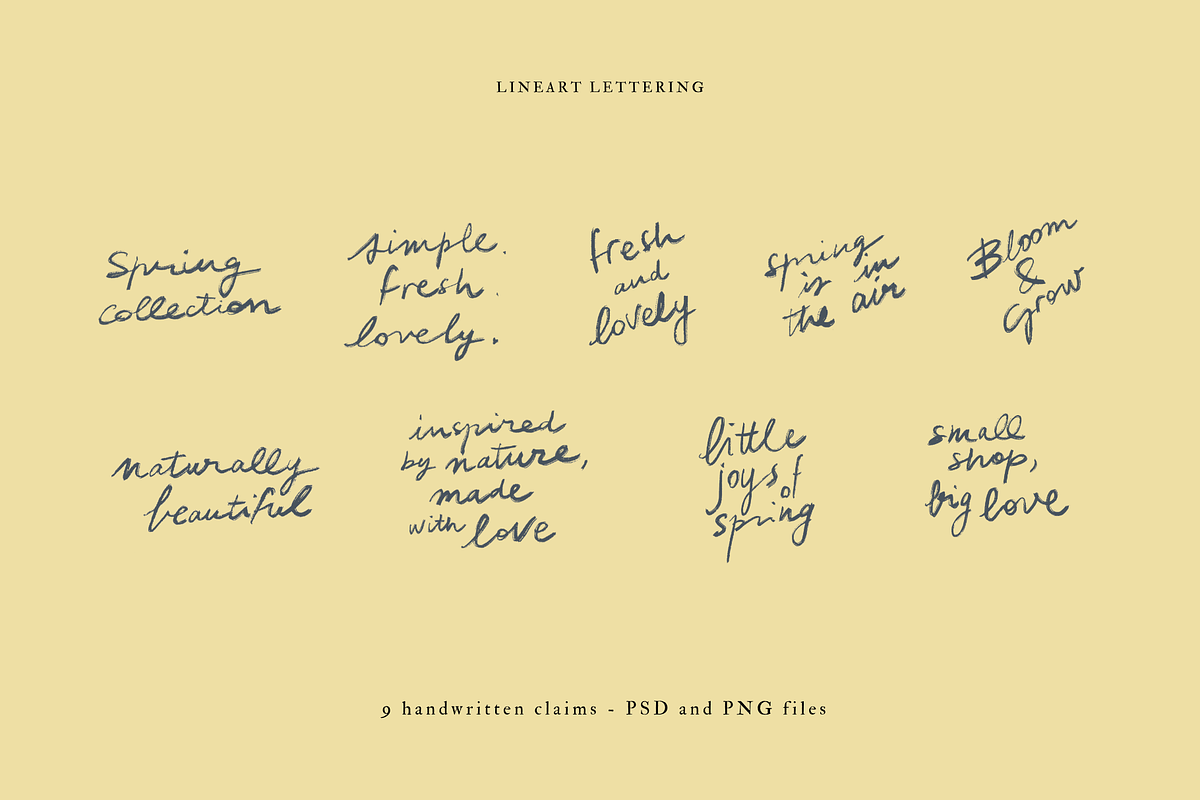 LINEART LETTERING
Spring
collection
simple.
fresh.
lovely.
fresh
and
lovely
spring
is in
the air
Bloom
&
Grow
naturally
beautiful
inspired
by nature,
made
with love
little
joys of
spring
small
shop,
big love
9 handwritten claims - PSD and PNG files